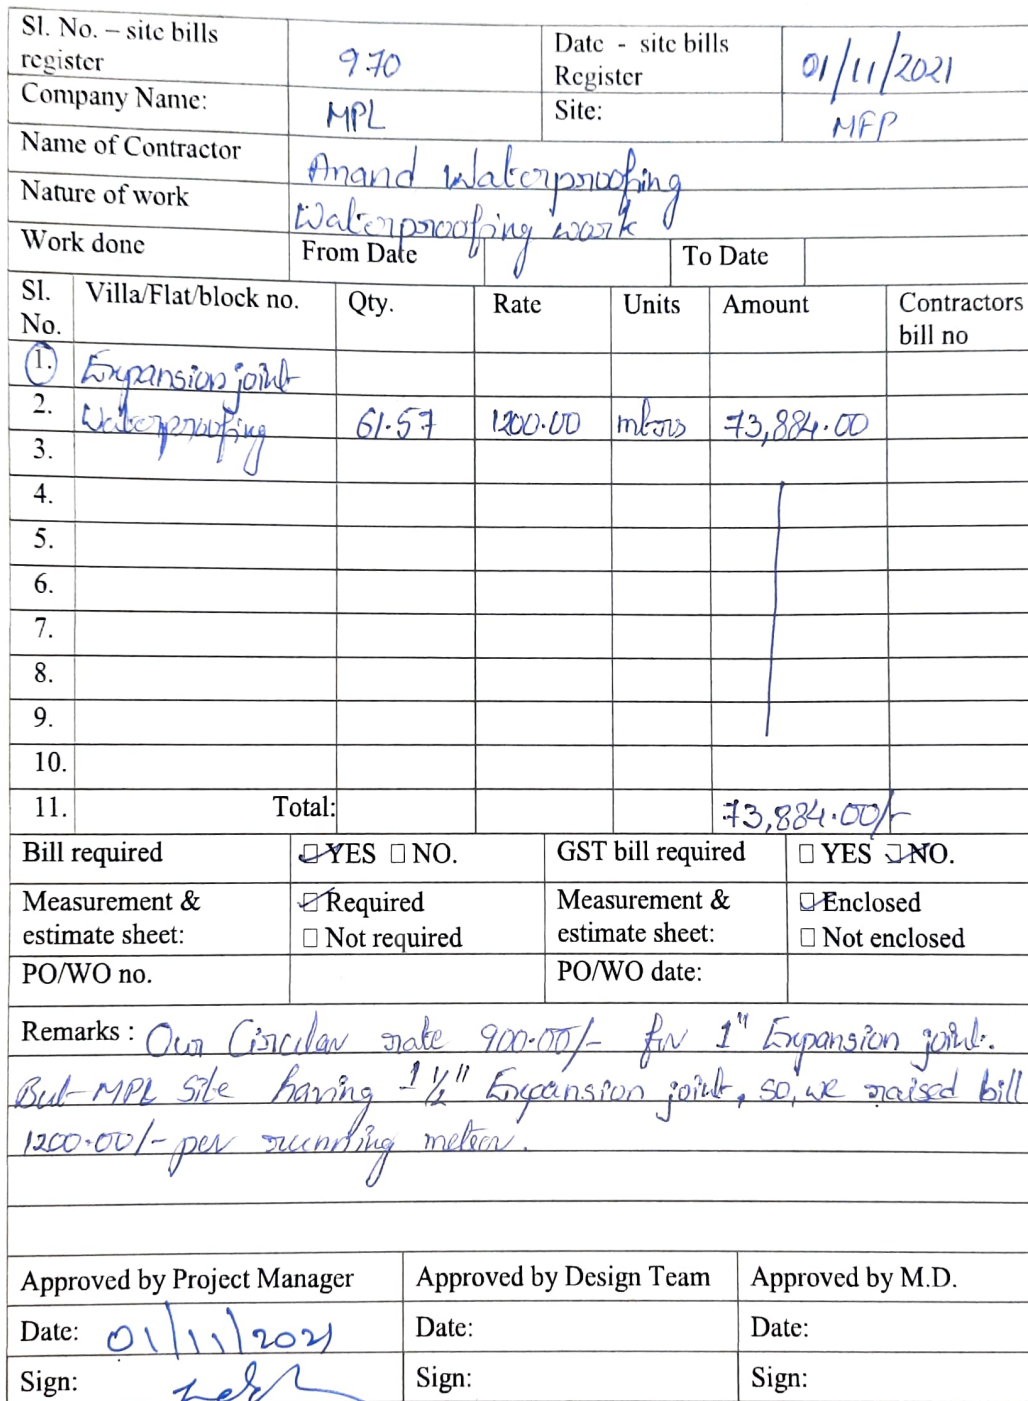 Sl. No. – site bills register 970 Date - site bills Register 01/11/2021
Company Name: MPL Site: MFP
Name of Contractor Anand Waterproofing
Nature of work Waterproofing work
Work done From Date To Date
Sl. No. Villa/Flat/block no. Qty. Rate Units Amount Contractors bill no
1. Expansion joint
2. Waterproofing 61.57 1200.00 mtrs 73,884.00
3.
4.
5.
6.
7.
8.
9.
10.
11. Total: 73,884.00/-
Bill required YES NO. GST bill required YES NO.
Measurement & estimate sheet: Required Not required Measurement & estimate sheet: Enclosed Not enclosed
PO/WO no. PO/WO date:
Remarks : Our Circular rate 900.00/- for 1" Expansion joint.
But MPL Site having 1 1/2" Expansion joint, so, we raised bill
1200.00/- per running meter.
Approved by Project Manager Approved by Design Team Approved by M.D.
Date: 01/11/2021 Date: Date:
Sign: Sign: Sign: